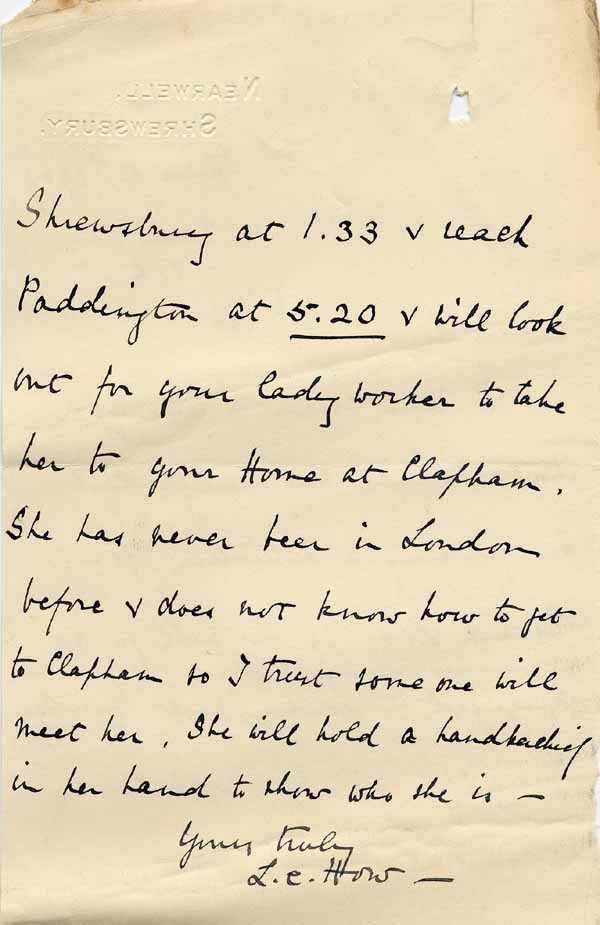 NEARWELL.
SHREWSBURY.
Shrewsbury at 1.33 & reach
Paddington at 5.20 & will look
out for your lady worker to take
her to your Home at Clapham.
She has never been in London
before & does not know how to get
to Clapham so I trust some one will
meet her. She will hold a handkerchief
in her hand to show who she is —
Yours truly
L. e. How —